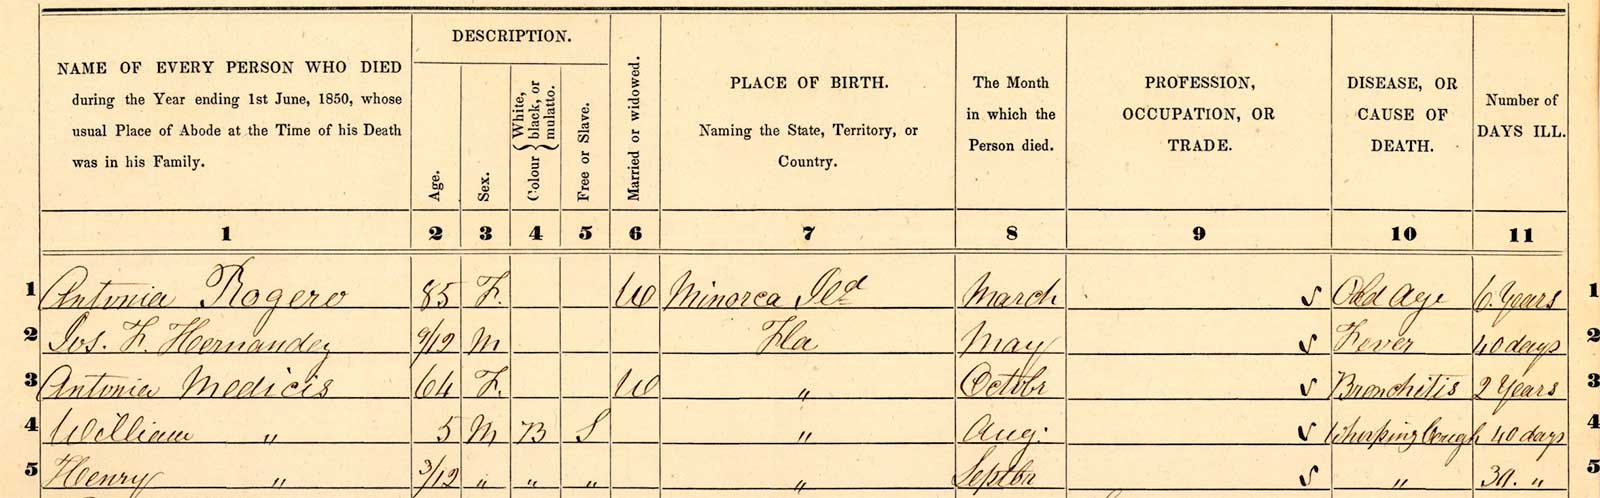 NAME OF EVERY PERSON WHO DIED
during the Year ending 1st June, 1850, whose
usual Place of Abode at the Time of his Death
was in his Family.
DESCRIPTION.
Age.
Sex.
Colour { White, black, or mulatto.
Free or Slave.
Married or widowed.
PLACE OF BIRTH.
Naming the State, Territory, or
Country.
The Month
in which the
Person died.
PROFESSION,
OCCUPATION, OR
TRADE.
DISEASE, OR
CAUSE OF
DEATH.
Number of
DAYS ILL.
1 2 3 4 5 6 7 8 9 10 11
1 Antonia Rogero 85 F. W Minorca Ild March Old Age 6. Years 1
2 Jos. F. Hernandez 9/12 M Fla May Fever 40 days 2
3 Antonia Medicis 64 F. W " Octobr Bronchitis 2 Years 3
4 William " 5 M B S " Aug. Whooping Cough 40 days 4
5 Henry " 3/12 " " " " Septbr " 30. " 5